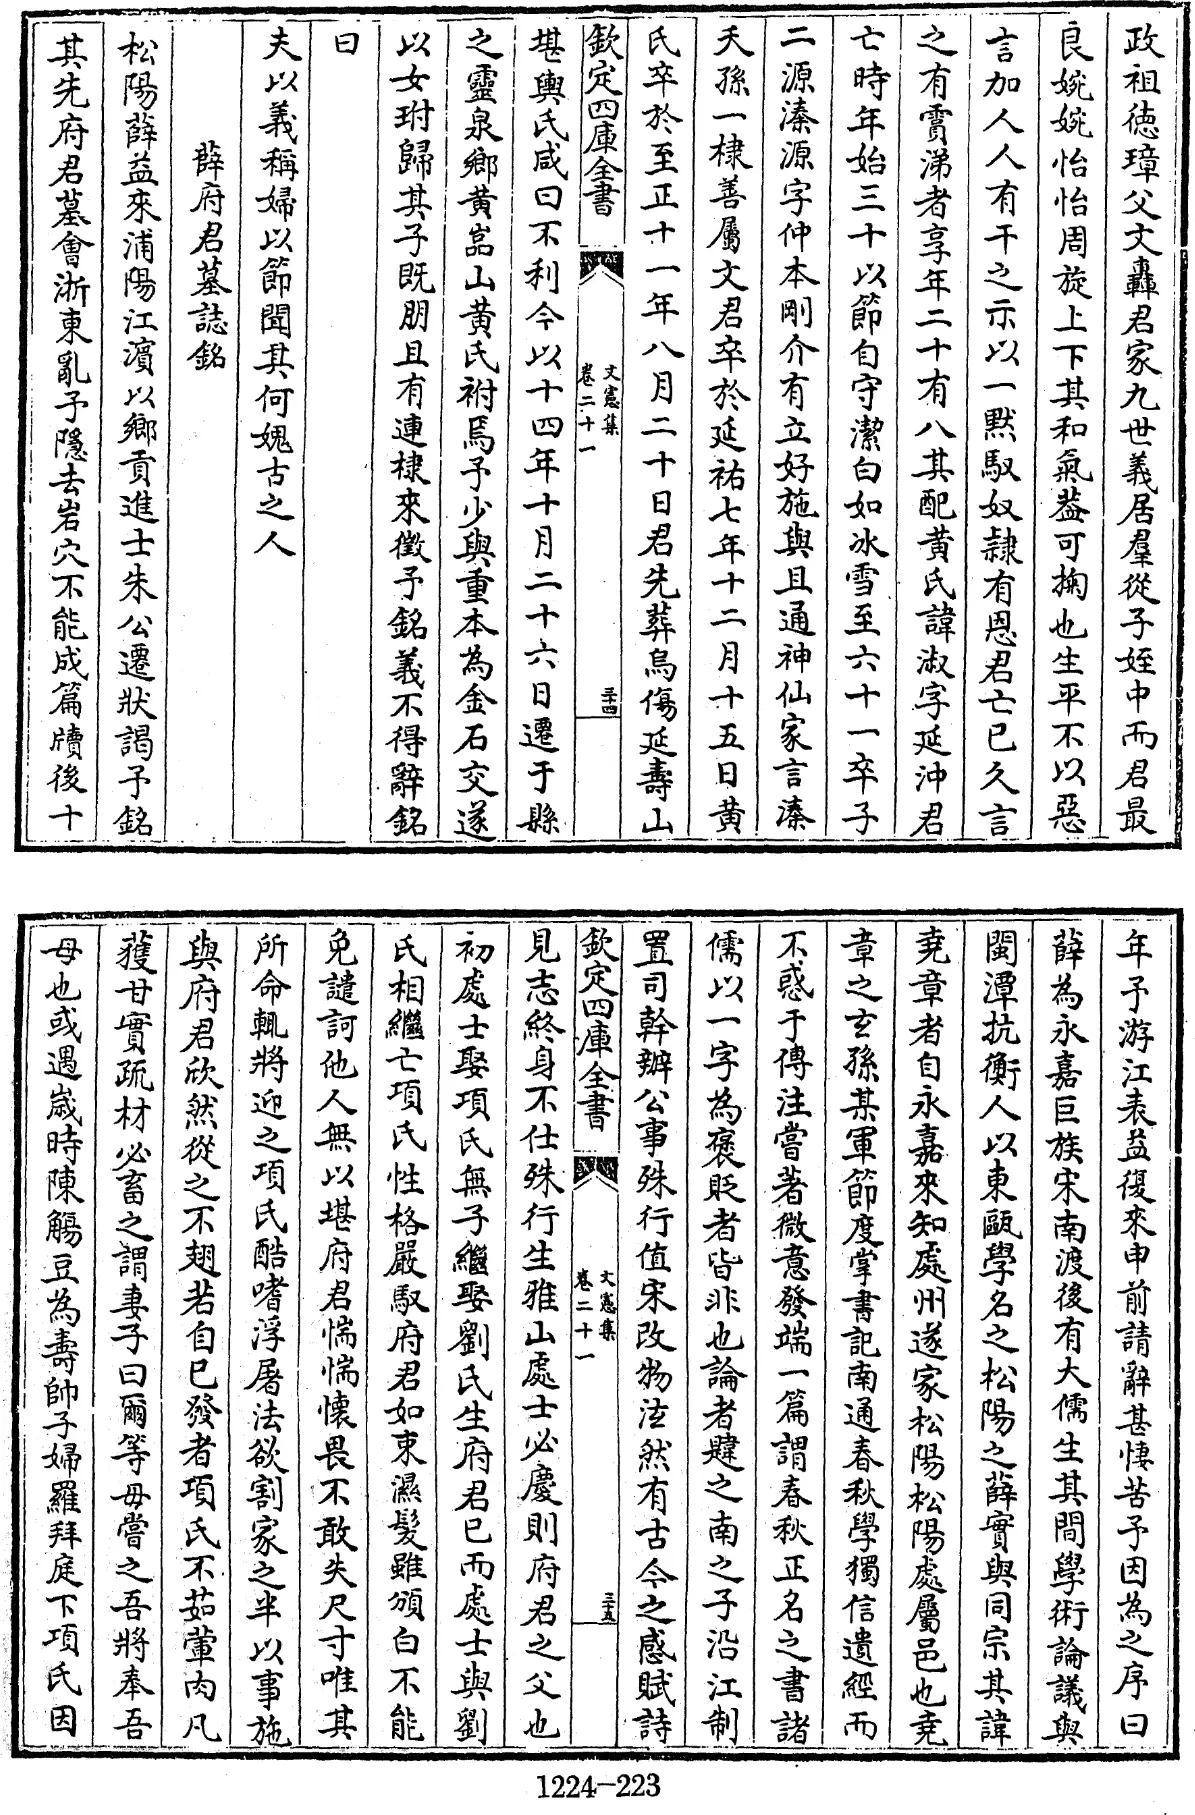 政祖徳璋父文轟君家九世義居羣從子姪中而君最
良婉婉怡怡周旋上下其和氣葢可掬也生平不以惡
言加人人有干之示以一黙馭奴隸有恩君亡已久言
之有霣涕者享年二十有八其配黄氏諱淑字延沖君
亡時年始三十以節自守潔白如冰雪至六十一卒子
二源溱源字仲本剛介有立好施與且通神仙家言溱
夭孫一棣善屬文君卒於延祐七年十二月十五日黄
氏卒於至正十一年八月二十日君先葬烏傷延壽山
欽定四庫全書
文憲集
卷二十一
三十四
堪輿氏咸曰不利今以十四年十月二十六日遷于縣
之靈泉鄉黄嵓山黄氏祔焉予少與重本為金石交遂
以女珘歸其子既朋且有連棣來徵予銘義不得辭銘
曰
夫以義稱婦以節聞其何媿古之人
薛府君墓誌銘
松陽薛益來浦陽江濵以鄉貢進士朱公遷狀謁予銘
其先府君墓會浙東亂予隱去岩穴不能成篇牘後十
年予游江表益復來申前請辭甚悽苦予因為之序曰
薛為永嘉巨族宋南渡後有大儒生其間學術論議與
閩潭抗衡人以東甌學名之松陽之薛實與同宗其諱
尭章者自永嘉來知處州遂家松陽松陽處屬邑也尭
章之玄孫某軍節度掌書記南通春秋學獨信遺經而
不惑于傳注嘗著微意發端一篇謂春秋正名之書諸
儒以一字為褒貶者皆非也論者韙之南之子沿江制
置司幹辦公事殊行值宋改物泫然有古今之感賦詩
欽定四庫全書
文憲集
卷二十一
三十五
見志終身不仕殊行生雅山處士必慶則府君之父也
初處士娶項氏無子繼娶劉氏生府君已而處士與劉
氏相繼亡項氏性格嚴馭府君如束濕髮雖頒白不能
免譴訶他人無以堪府君惴惴懐畏不敢失尺寸唯其
所命輒將迎之項氏酷嗜浮屠法欲割家之半以事施
與府君欣然從之不翅若自已發者項氏不茹葷肉凡
獲甘實疏材必畜之謂妻子曰爾等毋嘗之吾將奉吾
母也或遇嵗時陳觴豆為壽帥子婦羅拜庭下項氏因
1224-223